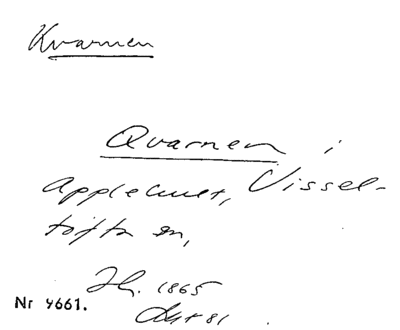 Kvarnen
Qvarnen i
Applehult, Vissel-
tofta sn,
1865
Nr 4661.